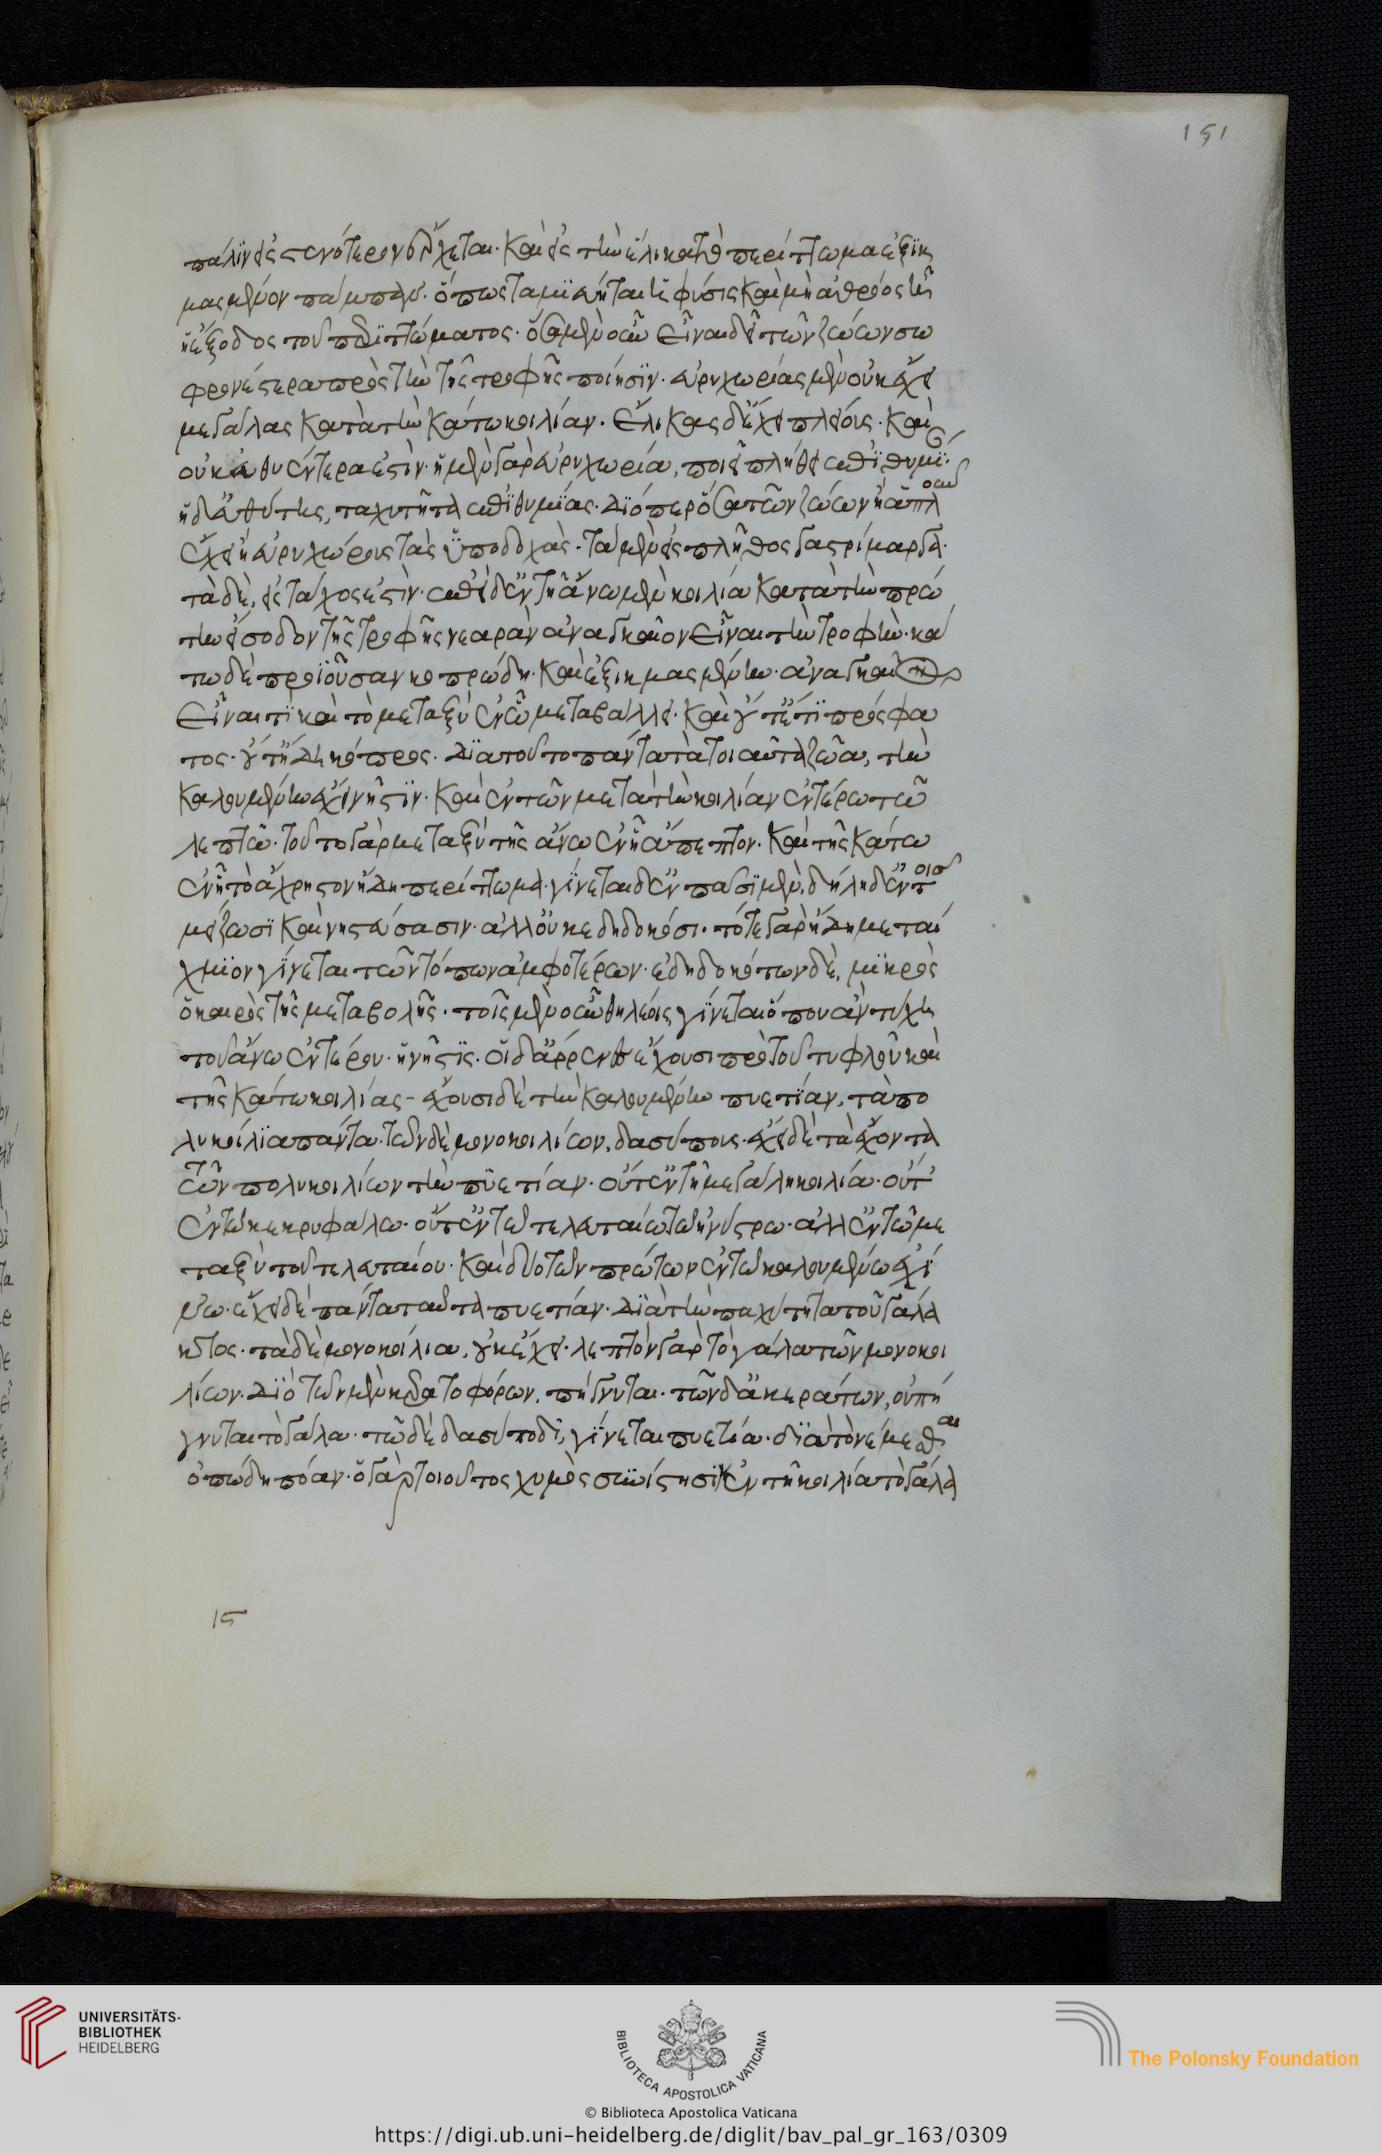 151
πάλιν εἰς στενότερον ἔρχεται· καὶ εἰς τὴν ἕλικα τὸ περίττωμα ἐξικ
μασμένον πάμπαν· ὅπως ταμιεύηται ἡ φύσις καὶ μὴ ἀθρόος ᾖ
ἡ ἔξοδος τοῦ περιττώματος· ὅσα μὲν οὖν εἶναι δεῖ τῶν ζώων σω
φρονέστερα πρὸς τὴν τῆς τροφῆς ποίησιν· εὐρυχωρίας μὲν οὐκ ἔχει
μεγάλας κατὰ τὴν κάτω κοιλίαν· ἕλικας δ' ἔχει πλείους· καὶ
οὐκ εὐθυέντερά ἐστιν· ἡ μὲν γὰρ εὐρυχωρία, ποιεῖ πλήθους ἐπιθυμί
ἡ δ' εὐθύτης, ταχυτῆτα ἐπιθυμίας· διόπερ ὅσα τῶν ζώων ἢ ἁπλ
ἔχει ἢ εὐρυχώρους τὰς ὑποδοχὰς· τὰ μὲν εἰς πλῆθος γαστρίμαργα·
τὰ δὲ, εἰς τάχος ἐστὶν· ἐπεὶ δ' ἐν τῇ ἄνω μὲν κοιλία κατὰ τὴν πρώ
την εἴσοδον τῆς τροφῆς νεαρὰν ἀναγκαῖον εἶναι τὴν τροφὴν· κά
τω δὲ προϊοῦσαν κοπρώδη· καὶ ἐξικμασμένην· ἀναγκαῖον
εἶναί τι καὶ τὸ μεταξὺ ἐν ᾧ μεταβάλλει· καὶ οὔτ' ἔτι πρόσφα
τος· οὔτ' ἤδη κόπρος· διὰ τοῦτο πάντα τὰ τοιαῦτα ζῶα, τὴν
καλουμένην ἔχει νῆστιν· καὶ ἐν τῶν μετὰ τὴν κοιλίαν ἐντέρω τῶ
λεπτῶ· τοῦτο γὰρ μεταξὺ τῆς ἄνω ἐν ᾗ ἄπεπτον· καὶ τῆς κάτω
ἐν ᾗ τὸ ἄχρηστον ἤδη περίττωμα· γίνεται δ' ἐν πᾶσι μὲν, δήλη δ' ἐν τοῖς
μείζωσι καὶ νηστεύσασιν· ἀλλ' οὐκ ἐδηδοκόσι· τότε γὰρ ἤδη μεταί
χμιον γίνεται τῶν τόπων ἀμφοτέρων· ἐδηδοκότων δὲ, μικρὸς
ὁ καιρὸς τῆς μεταβολῆς· τοῖς μὲν οὖν θήλεσι γίνεται ὅπου ἂν τύχη
τοῦ ἄνω ἐντέρου· ἡ νῆστις· οἱ δ' ἄρρενες ἔχουσι πρὸ τοῦ τυφλοῦ καὶ
τῆς κάτω κοιλίας - ἔχουσι δὲ τὴν καλουμένην πυετίαν, τὰ πο
λυκοίλια πάντα· τῶν δὲ μονοκοιλίων, δασύπους· ἔχει δὲ τὰ ἔχοντα
τῶν πολυκοιλίων τὴν πυετίαν· οὔτ' ἐν τῇ μεγάλη κοιλία· οὔτ'
ἐν τῶ κεκρυφάλω· οὔτ' ἐν τῶ τελευταίω τῶ ἠνύστρω· ἀλλ' ἐν τῶ με
ταξὺ τοῦ τελευταίου· καὶ δύο τῶν πρώτων ἐν τῶ καλουμένω ἐχί
νω· ἔχει δὲ πάντα ταῦτα πυετίαν· διὰ τὴν παχύτητα τοῦ γάλα
κτος· τὰ δὲ μονοκοίλια, οὐκ ἔχει· λεπτὸν γὰρ τὸ γάλα τῶν μονοκοι
λίων· διὸ τῶν μὲν κερατοφόρων, πήγνυται· τῶν δ' ἀκεράτων, οὐ πή
γνυται τὸ γάλα· τῶ δὲ δασύποδι, γίνεται πυετία· διὰ τὸ νέμεσθαι
ὀπώδη πόαν· ὁ γὰρ τοιοῦτος χυμὸς συνίστησιν ἐν τῇ κοιλία τὸ γάλα
15
UNIVERSITÄTS-
BIBLIOTHEK
HEIDELBERG
BIBLIOTECA APOSTOLICA VATICANA
The Polonsky Foundation
© Biblioteca Apostolica Vaticana
https://digi.ub.uni-heidelberg.de/diglit/bav_pal_gr_163/0309